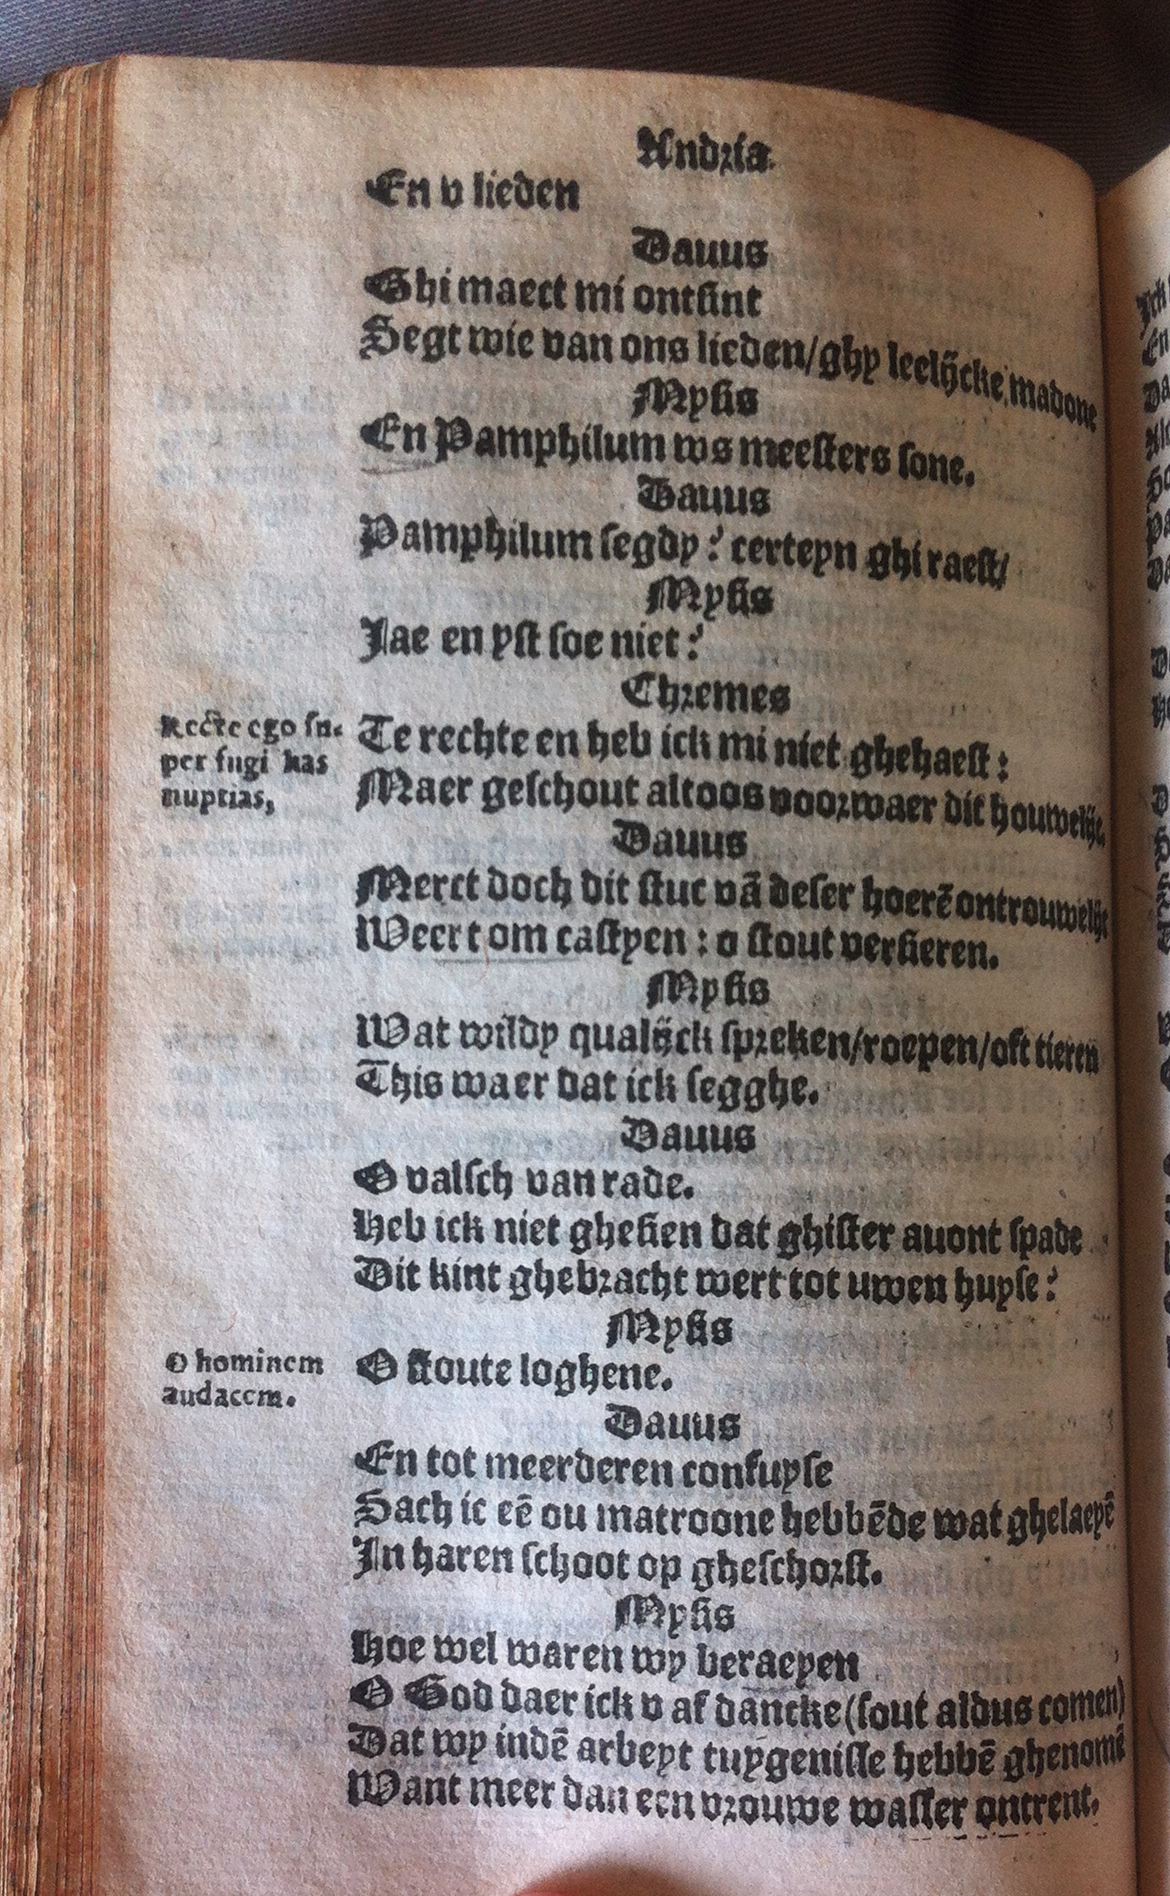 Andria.
En v lieden
Dauus
Ghi maect mi ontsint
Segt wie van ons lieden/ghy leelijcke madone
Mysis
En Pamphilum ws meesters sone.
Dauus
Pamphilum segdy? certeyn ghi raest/
Mysis
Jae en yst soe niet?
Chremes
Recte ego su-
per fugi has
nuptias,
Te rechte en heb ick mi niet ghehaest:
Maer geschout altoos voorwaer dit houwelijc.
Dauus
Merct doch dit stuc vā deser hoerē ontrouwelijc
Weert om castyen: o stout versieren.
Mysis
Wat wildy qualijck spreken/roepen/oft tieren
This waer dat ick segghe.
Dauus
O valsch van rade.
Heb ick niet ghesien dat ghister auont spade
Dit kint ghebracht wert tot uwen huyse?
Mysis
O hominem
audacem.
O stoute loghene.
Dauus
En tot meerderen confuyse
Sach ic eē ou matroone hebbēde wat ghelaeyē
In haren schoot op gheschorst.
Mysis
Hoe wel waren wy beraeyen
O God daer ick v af dancke (sout aldus comen)
Dat wy indē arbeyt tuygenisse hebbē ghenomē
Want meer dan een vrouwe wasser ontrent.